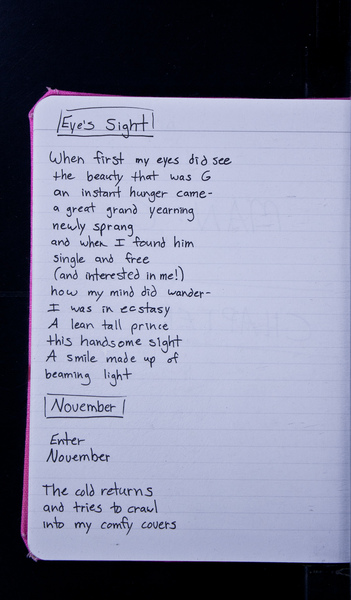 Eye's Sight
When first my eyes did see
the beauty that was G
an instant hunger came-
a great grand yearning
newly sprang
and when I found him
single and free
(and interested in me!)
how my mind did wander-
I was in ecstasy
A lean tall prince
this handsome sight
A smile made up of
beaming light
November
Enter
November
The cold returns
and tries to crawl
into my comfy covers